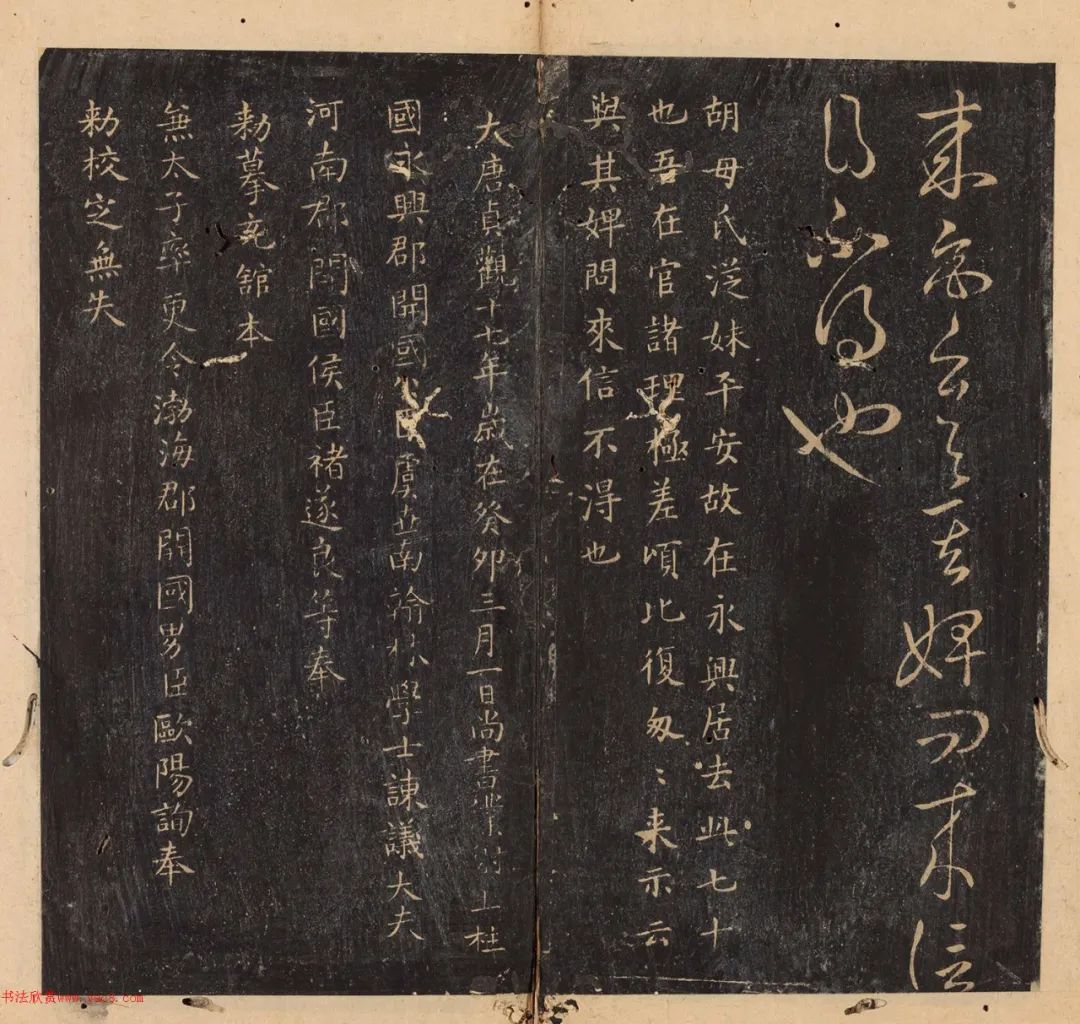 來示云与其婢問來信
不得也
胡母氏從妹平安故在永興居去此七十
也吾在官諸理極差頃比復匆〻来示云
與其婢問來信不得也
大唐貞觀十七年歲在癸卯三月一日尚書 上柱
國永興郡開國公臣虞世南翰林學士諫議大夫
河南郡開國侯臣褚遂良等奉
勑摹 舘本
兼太子率更令渤海郡開國男臣歐陽詢奉
勑校定無失
书法欣赏www.yac8.com